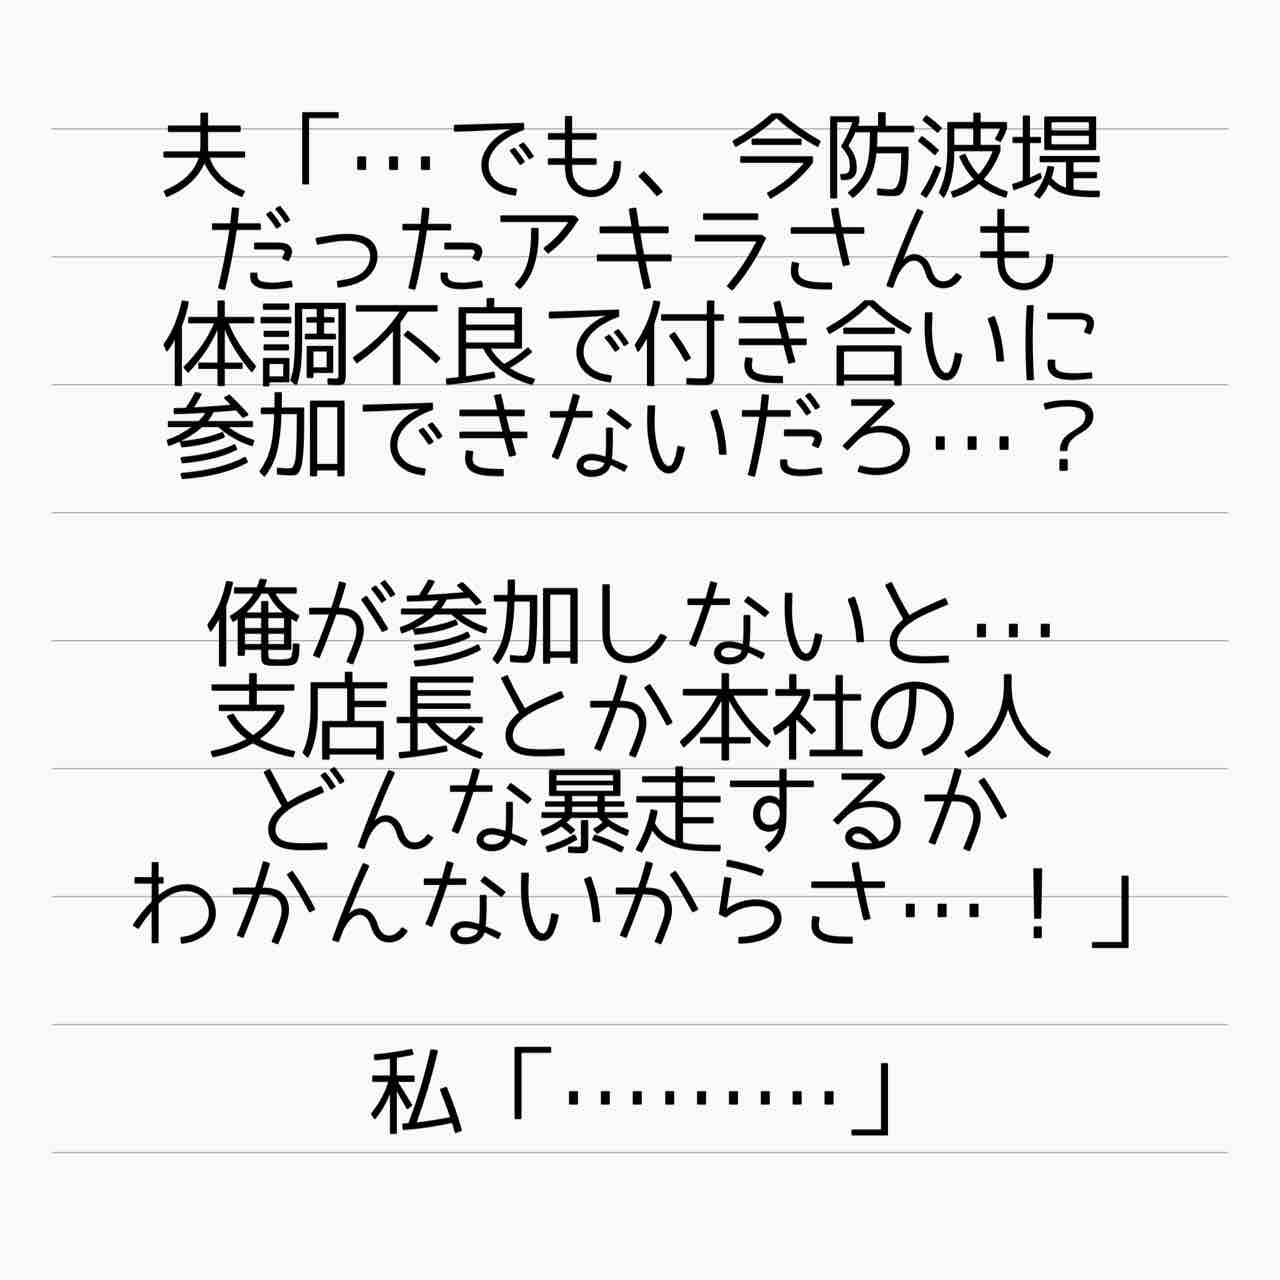 夫「…でも、今防波堤
だったアキラさんも
体調不良で付き合いに
参加できないだろ…？
俺が参加しないと…
支店長とか本社の人
どんな暴走するか
わかんないからさ…！」
私「………」